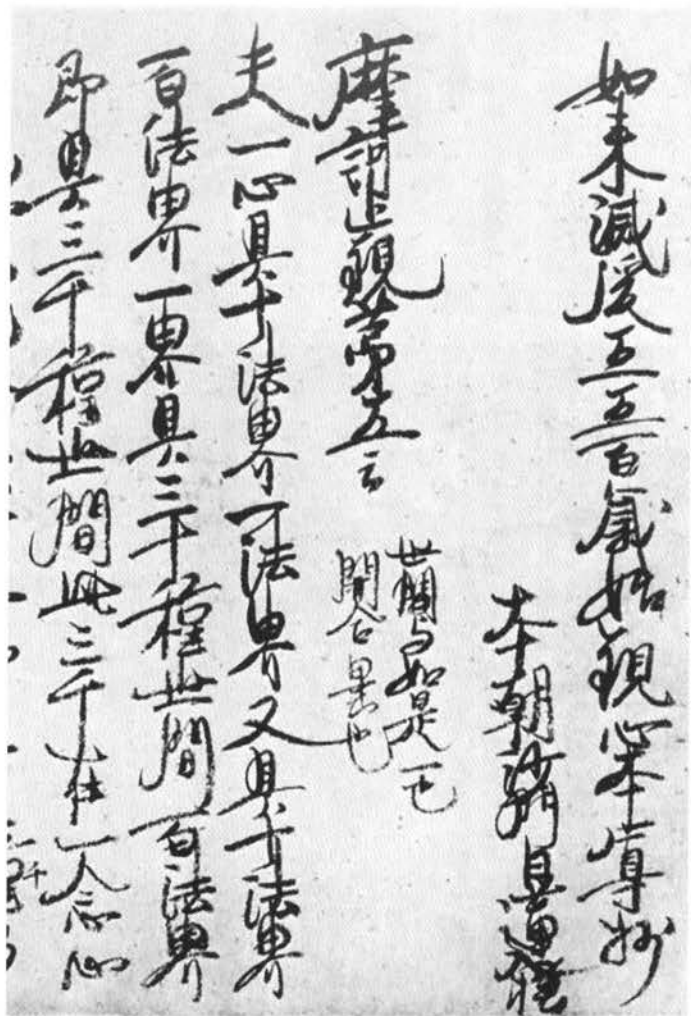 如来滅後五五百歳始観心本尊抄
本朝沙門日蓮撰
摩訶止観第五云
世間与如是一也
開合異也
夫一心具十法界一法界又具十法界
百法界一界具三十種世間百法界
即具三千種世間此三千在一念心